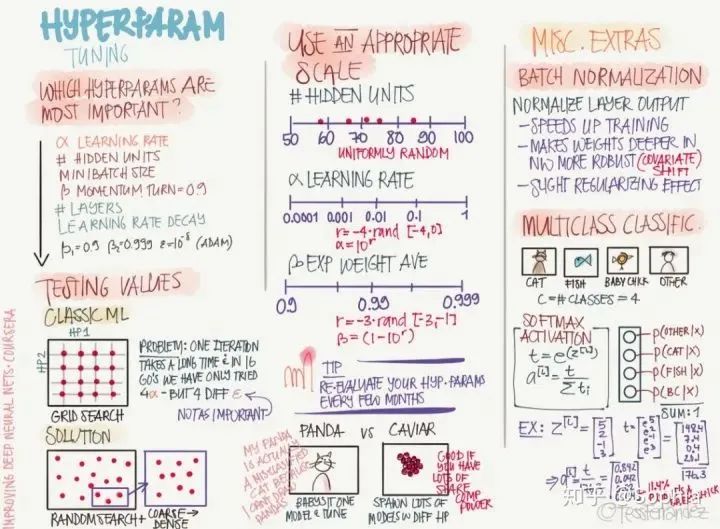 HYPERPARAM
TUNING
WHICH HYPERPARAMS ARE
MOST IMPORTANT?
α LEARNING RATE
# HIDDEN UNITS
MINIBATCH SIZE
β MOMENTUM TURN = 0.9
# LAYERS
LEARNING RATE DECAY
β₁=0.9 β₂=0.999 ε=10⁻⁸ (ADAM)
TESTING VALUES
CLASSIC ML
HP1
HP2
GRID SEARCH
PROBLEM: ONE ITERATION
TAKES A LONG TIME & IN 16
GO'S WE HAVE ONLY TRIED
4α - BUT 4 DIFF ε
NOT AS IMPORTANT
SOLUTION
RANDOM SEARCH + COARSE→
DENSE
IMPROVING DEEP NEURAL NETS · COURSERA
USE AN APPROPRIATE
SCALE
# HIDDEN UNITS
50 60 70 80 90 100
UNIFORMLY RANDOM
α LEARNING RATE
0.0001 0.001 0.01 0.1 1
r = -4 · rand [-4,0]
α = 10ʳ
β EXP WEIGHT AVE
0.9 0.99 0.999
r = -3 · rand [-3,-1]
β = (1-10ʳ)
TIP
RE-EVALUATE YOUR HYP. PARAMS
EVERY FEW MONTHS
PANDA VS CAVIAR
MY PANDA
IS ACTUALLY
A
CAT BECAUSE
PANDAS
BABYSIT ONE
MODEL & TUNE
SPAWN LOTS OF
MODELS W DIFF HP
GOOD IF
YOU HAVE
LOTS OF
SHARE
COMP
POWER
MISC. EXTRAS
BATCH NORMALIZATION
NORMALIZE LAYER OUTPUT
- SPEEDS UP TRAINING
- MAKES WEIGHTS DEEPER IN
NW MORE ROBUST (COVARIATE
SHIFT)
- SLIGHT REGULARIZING EFFECT
MULTICLASS CLASSIFIC.
CAT FISH BABY CHICK OTHER
C = # CLASSES = 4
SOFTMAX
ACTIVATION
t = e^(z^[L])
a^[L] = t / Σtᵢ
P(OTHER|X)
P(CAT|X)
P(FISH|X)
P(BC|X)
SUM: 1
EX: z^[L] = [5 2 -1 3] t = [e⁵ e² e⁻¹ e³] = [148.4 7.4 0.4 20.1]
176.3
→ a^[L] = t = [0.842 0.042 0.002
11.4%
知乎 @Sophia